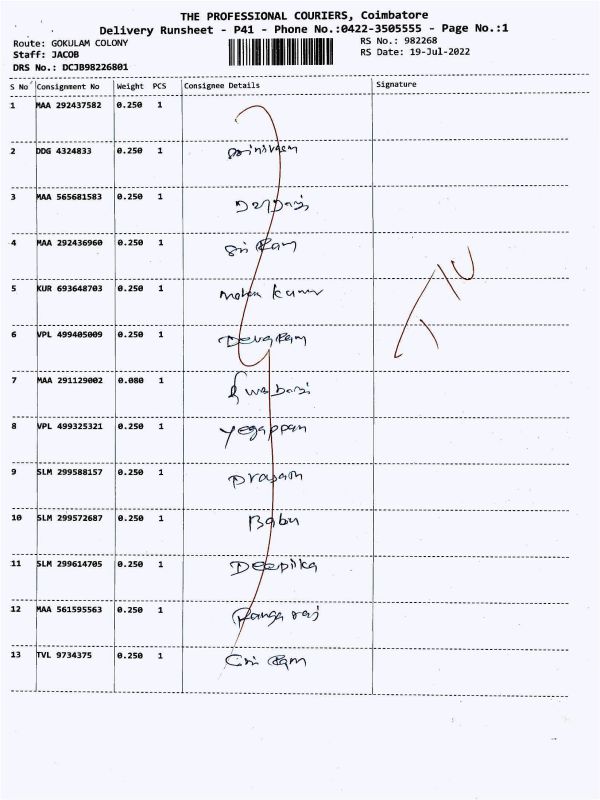 THE PROFESSIONAL COURIERS, Coimbatore
Delivery Runsheet - P41 - Phone No.:0422-3505555 - Page No.:1
Route: GOKULAM COLONY RS No.: 982268
Staff: JACOB RS Date: 19-Jul-2022
DRS No.: DCJB98226801
S No Consignment No Weight PCS Consignee Details Signature
1 MAA 292437582 0.250 1
2 DDG 4324833 0.250 1
3 MAA 565681583 0.250 1
4 MAA 292436960 0.250 1 Sri Ram
5 KUR 693648703 0.250 1 Mohan kumar
6 VPL 499405009 0.250 1 DevaRam
7 MAA 291129002 0.080 1
8 VPL 499325321 0.250 1 Yegappan
9 SLM 299588157 0.250 1
10 SLM 299572687 0.250 1 Babu
11 SLM 299614705 0.250 1 Deepika
12 MAA 561595563 0.250 1 Ranga raj
13 TVL 9734375 0.250 1 Sri Ram